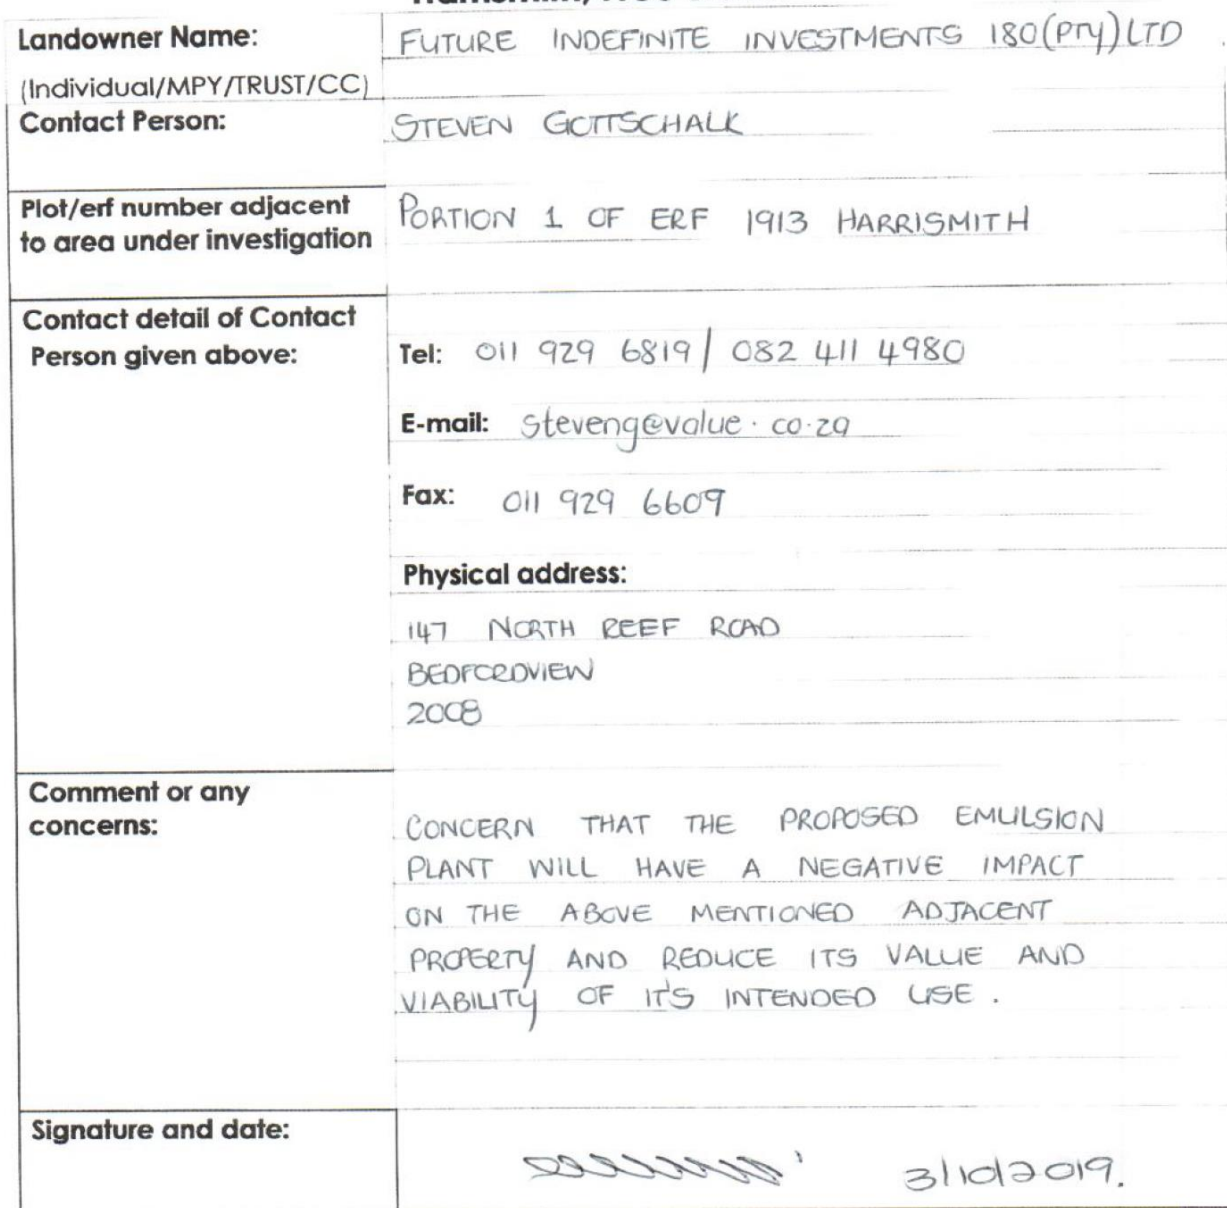 Landowner Name: FUTURE INDEFINITE INVESTMENTS 180 (PTY) LTD
(Individual/MPY/TRUST/CC)
Contact Person: STEVEN GOTTSCHALK
Plot/erf number adjacent
to area under investigation
PORTION 1 OF ERF 1913 HARRISMITH
Contact detail of Contact
Person given above:
Tel: 011 929 6819 / 082 411 4980
E-mail: steveng@value.co.za
Fax: 011 929 6609
Physical address:
147 NORTH REEF ROAD
BEDFORDVIEW
2008
Comment or any
concerns:
CONCERN THAT THE PROPOSED EMULSION
PLANT WILL HAVE A NEGATIVE IMPACT
ON THE ABOVE MENTIONED ADJACENT
PROPERTY AND REDUCE ITS VALUE AND
VIABILITY OF IT'S INTENDED USE.
Signature and date: 3/10/2019.